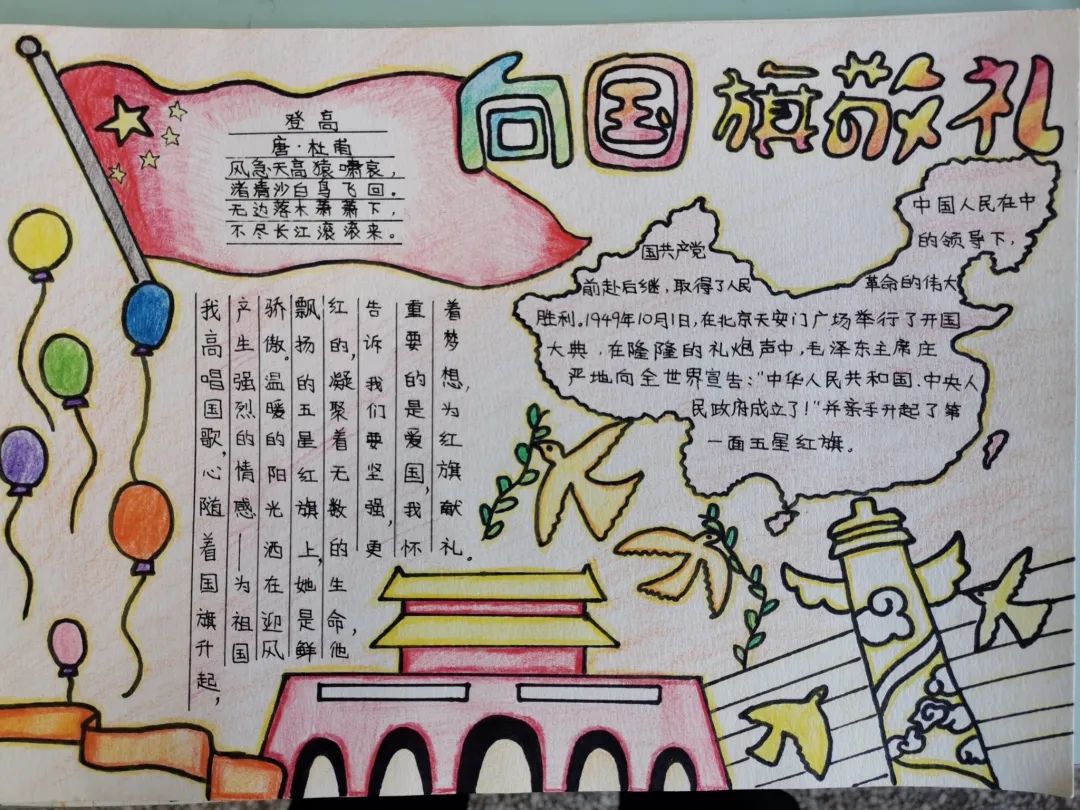 向国旗敬礼
登高
唐·杜甫
风急天高猿啸哀，
渚清沙白鸟飞回。
无边落木萧萧下，
不尽长江滚滚来。
我高唱国歌，心随着国旗升起，
产生强烈的情感—为祖国
骄傲。温暖的阳光洒在迎风
飘扬的五星红旗上，她是鲜
红的，凝聚着无数的生命，他
告诉我们要坚强，更
重要的是爱国，我怀
着梦想，为红旗献礼。
中国人民在中
国共产党 的领导下，
前赴后继，取得了人民 革命的伟大
胜利。1949年10月1日，在北京天安门广场举行了开国
大典，在隆隆的礼炮声中，毛泽东主席庄
严地向全世界宣告：“中华人民共和国、中央人
民政府成立了！”并亲手升起了第
一面五星红旗。